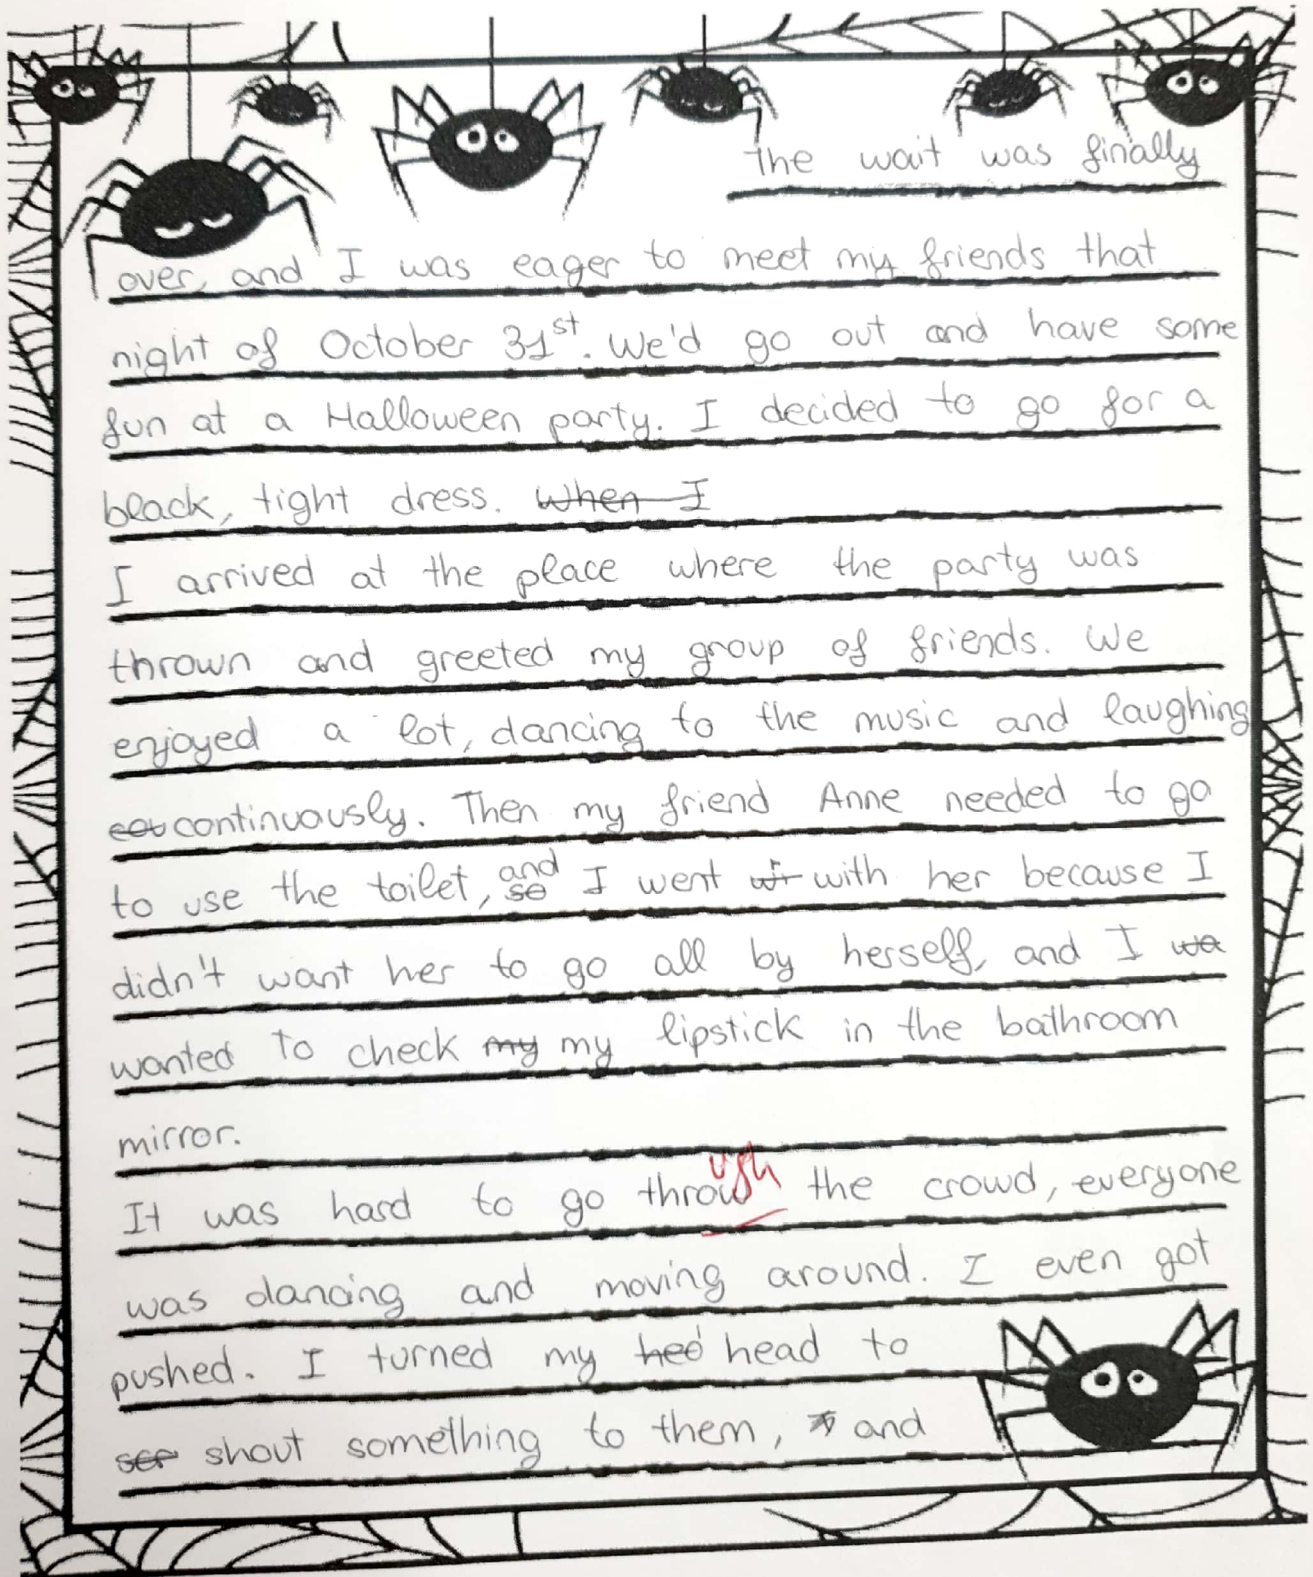 The wait was finally
over, and I was eager to meet my friends that
night of October 31st. We'd go out and have some
fun at a Halloween party. I decided to go for a
black, tight dress. When I
I arrived at the place where the party was
thrown and greeted my group of friends. We
enjoyed a lot, dancing to the music and laughing
cou continuously. Then my friend Anne needed to go
to use the toilet, so and I went wit with her because I
didn't want her to go all by herself, and I wa
wanted to check my my lipstick in the bathroom
mirror.
It was hard to go through the crowd, everyone
was dancing and moving around. I even got
pushed. I turned my hed head to
shout something to them, and